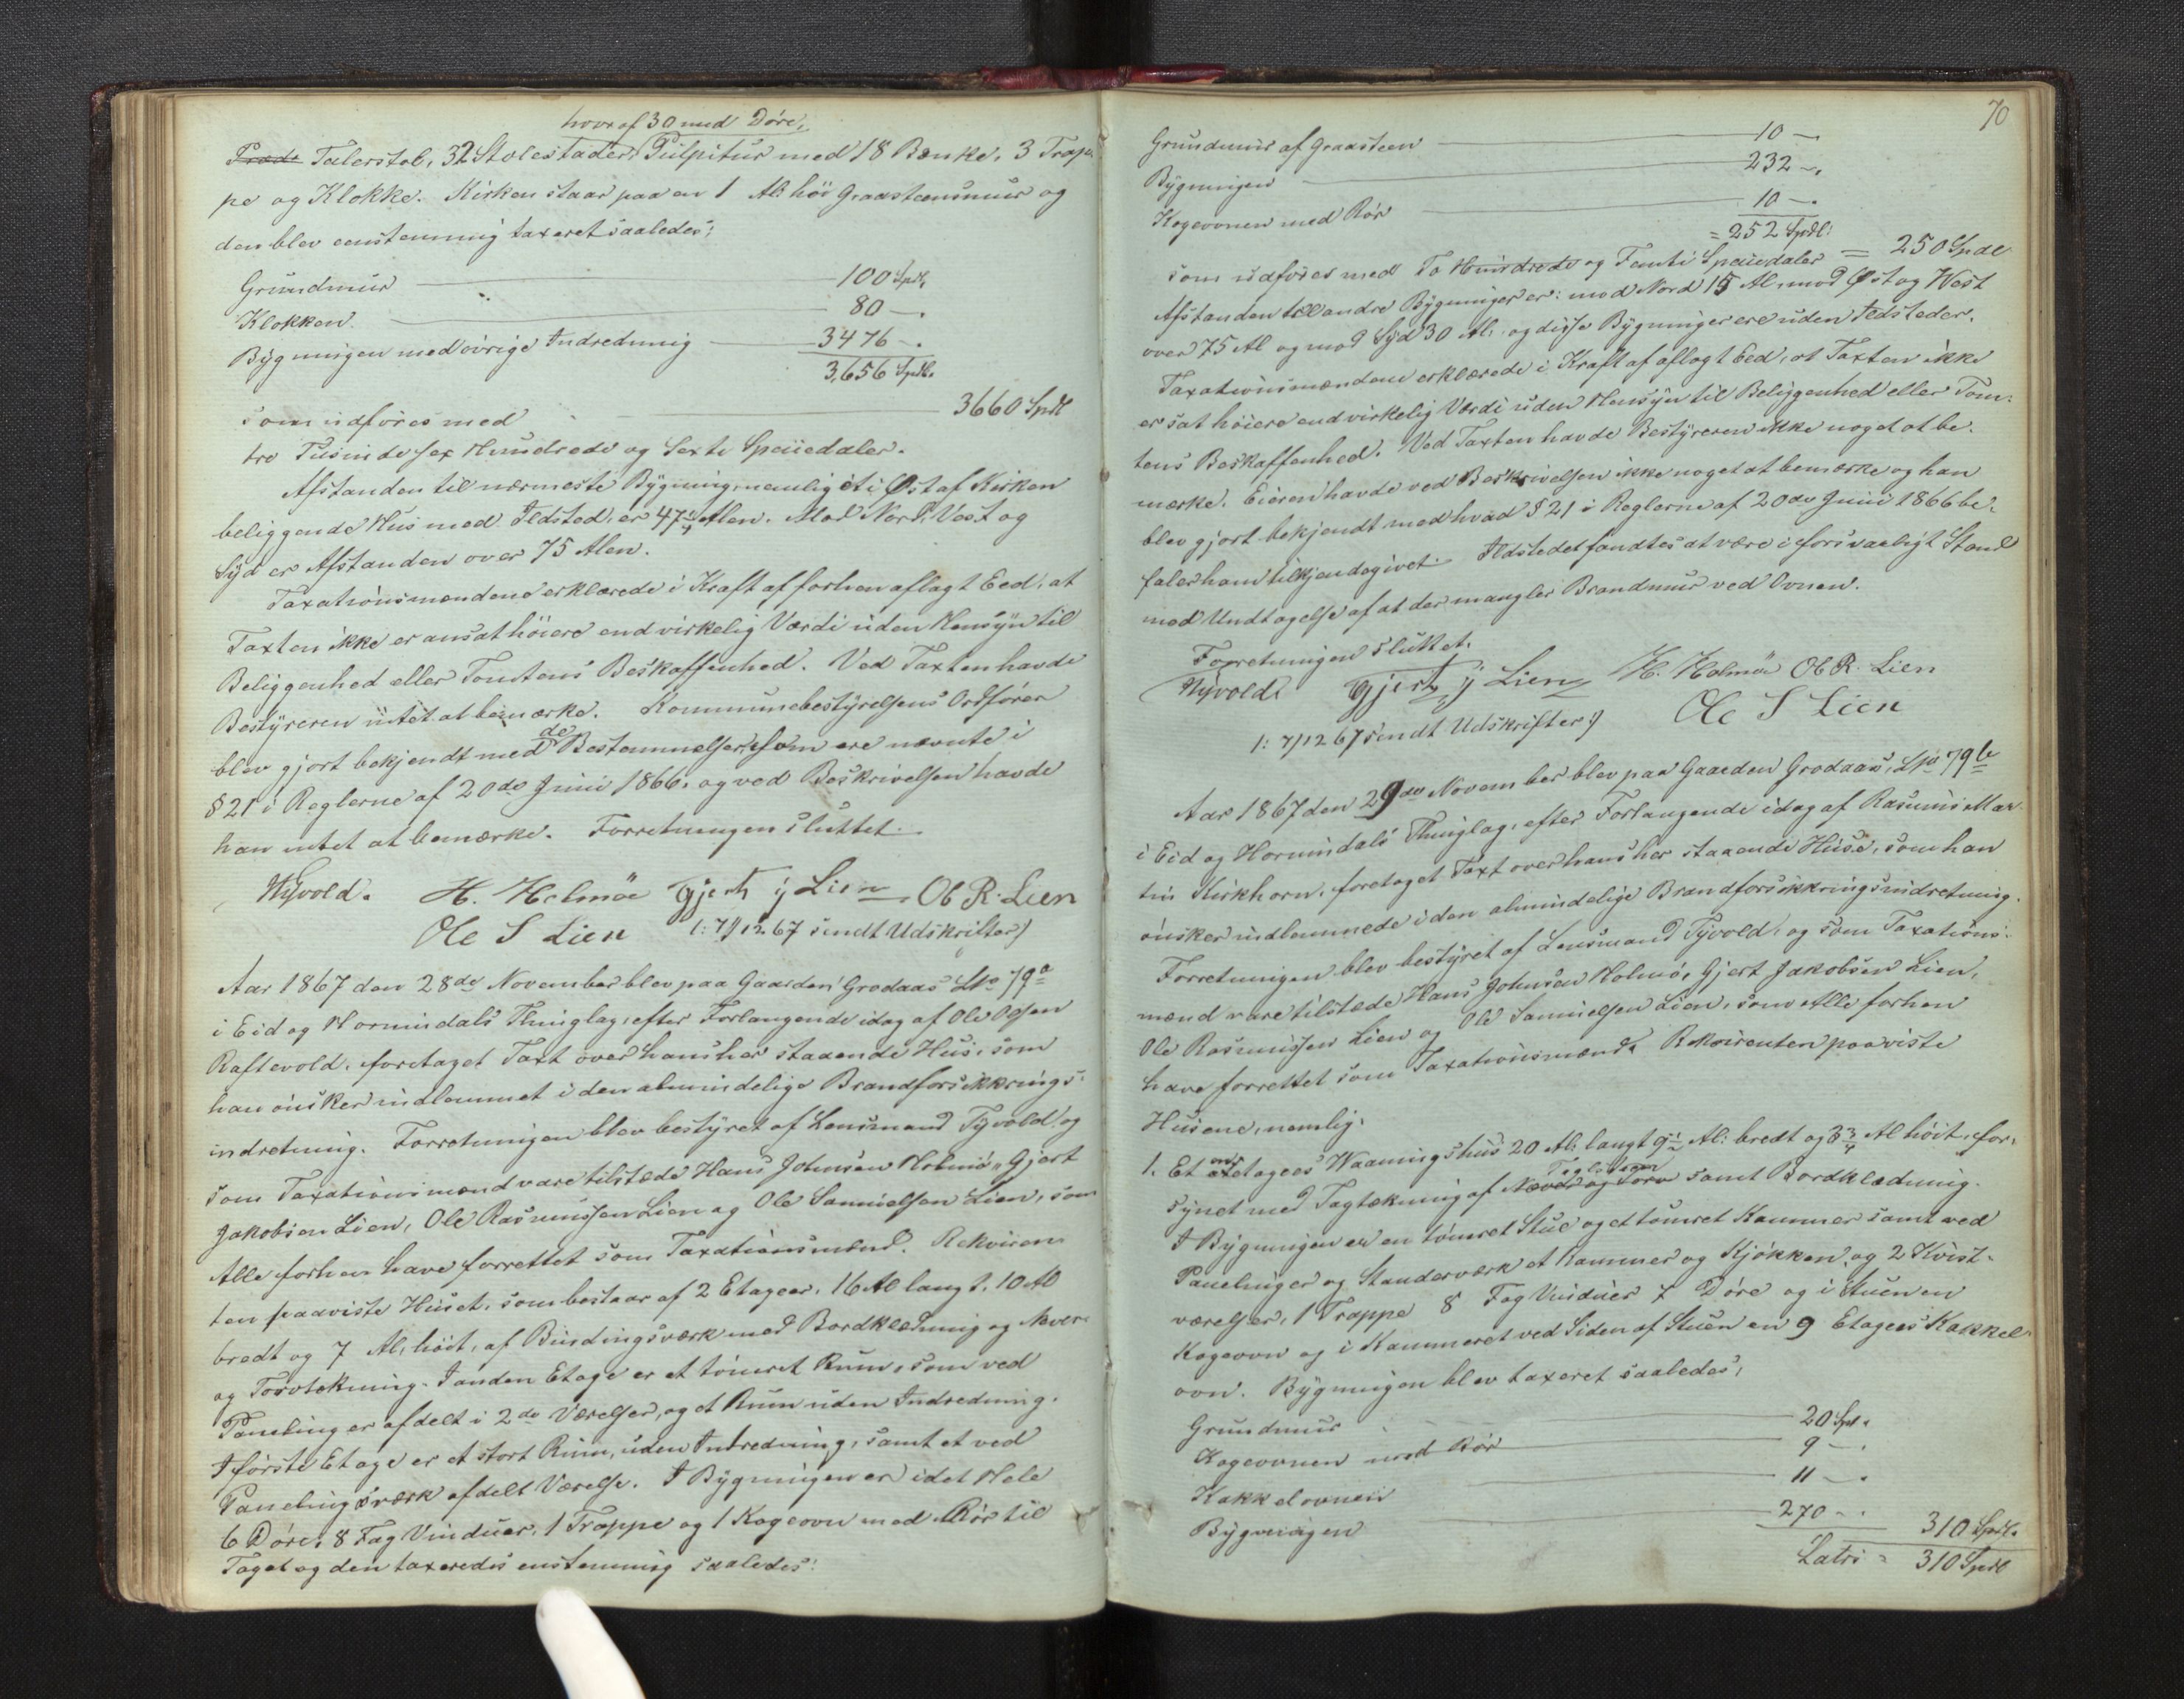 hvoraf 30 med Døre,
Præd. Talerstol, 32 Stolestader, Pulpitur med 18 Bænke, 3 Trap-
pe og Klokke. Kirken staar paa en 1 Al. høi Graasteensmuur og
den blev eenstemmig taxeret saaledes:
Grundmuur 100 Spdl.
Klokken 80 —.
Bygningen med øvrige Indredning 3476 —.
3,656 Spdl.
som udføres med 3660 Spdl
tre Tusinde sex Hundrede og Sexti Speciedaler.
Afstanden til nærmeste Bygning, nemlig et i Øst af Kirken
beliggende Hus med Ildsted, er 47 Alen. Mod Nord, Vest og
Syd er Afstanden over 75 Alen.
Taxationsmændene erklærede i Kraft af forhen aflagt Eed, at
Taxten ikke er ansat høiere end virkelig Værdi uden Hensyn til
Beliggenhed eller Tomtens Beskaffenhed. Ved Taxten havde
Bestyreren intet at bemærke. Kommunebestyrelsens Ordfører
blev gjort bekjendt med de Bestemmelser, som ere nævnte i
§ 21 i Reglerne af 20de Juni 1866, og ved Beskrivelsen havde
han intet at bemærke. Forretningen sluttet.
Tyvold. H. Holmøe Gjert J Lien Ol R. Lien
Ole S Lien /: 7/12 67 sendt Udskrifter /
Aar 1867 den 28de November blev paa Gaarden Grodaas LNo 79a
i Eid og Hornindals Thinglag, efter Forlangende idag af Ole Olsen
Raftevold, foretaget Taxt over hans her staaende Hus, som
han ønsker indlemmet i den almindelige Brandforsikkrings-
indretning. Forretningen blev bestyret af Lensmand Tyvold og
som Taxationsmænd vare tilstæde Hans Johnsen Holmø, Gjert
Jakobsen Lien, Ole Rasmussen Lien og Ole Samuelsen Lien, som
Alle forhen have forrettet som Taxationsmænd. Rekviren-
ten paaviste Huset, som bestaar af 2 Etager, 16 Al langt, 10 Al
bredt og 7 Al. høit, af Bindingsværk med Bordklædning og Never-
og Torvtekning. I anden Etage er et tømret Rum, som ved
Paneling er afdelt i 2de Værelser, og et Rum uden Indredning.
I første Etage er et stort Rum, uden Indredning, samt et ved
Panelingsværk afdelt Værelse. I Bygningen er idet Hele
6 Døre, 8 Fag Vinduer, 1 Trappe og 1 Kogeovn med Rør til
Taget og den taxeredes enstemmig saaledes:
70
Grundmuur af Graasteen 10 —.
Bygningen 232 —.
Kogeovnen med Rør 10 —.
= 252 Spdl:
som udføres med To Hundrede og Femti Speciedaler = 250 Spdl
Afstanden till andre Bygninger er: mod Nord 15 Al, mod Øst og West
over 75 Al og mod Syd 30 Al. og disse Bygninger ere uden Ildsteder.
Taxationsmændene erklærede i Kraft af aflagt Eed, at Taxten ikke
er sat høiere end virkelig Værdi uden Hensyn til Beliggenhed eller Tom-
tens Beskaffenhed. Ved Taxten havde Bestyreren ikke noget at be-
mærke. Eieren havde ved Beskrivelsen ikke noget at bemærke og han
blev gjort bekjendt med hvad § 21 i Reglerne af 20de Juni 1866 be-
faler ham tilkjendegivet. Ildstedet fandtes at være i forsvarligt Stand
med Undtagelse af at der mangler Brandmuur ved Ovnen.
Forretningen sluttet.
Tyvold Gjert J Lien H. Holmøe Ol R. Lien
/: 7/12 67 sendt Udskrifter :/ Ole S Lien
Aar 1867 den 29de November blev paa Gaarden Grodaas, LNo 79b
i Eid og Hornindals Thinglag, efter Forlangende idag af Rasmus Mar-
tin Kirkhorn, foretaget Taxt over hans her staaende Huse, som han
ønsker indlemmede i den almindelige Brandforsikkringsindretning.
Forretningen blev bestyret af Lensmand Tyvold, og som Taxations-
mænd vare tilstæde Hans Johnsen Holmø, Gjert Jakobsen Lien,
Ole Rasmussen Lien og Ole Samuelsen Lien, som Alle forhen
have forrettet som Taxationsmænd. Rekvirenten paaviste
Husene, nemlig:
1. Et en etages Waaningshus 20 Al. langt 9½ Al: bredt og 3¾ Al høit, for-
Teglsteen
synet med Tagtækning af Never og Torv samt Bordklædning.
I Bygningen er en tømret Stue og et tømret Kammer samt ved
Panelinger og Standerværk et Kammer og Kjøkken, og 2 Kvist-
værelser, 1 Trappe 8 Fag Vinduer 7 Døre og i Stuen en
Kogeovn og i Kammeret ved Siden af Stuen en 9 Etages Kakkel-
ovn. Bygningen blev taxeret saaledes:
Grundmuur 20 Spd.
Kogeovnen med Rør 9 —.
Kakkelovnen 11 —.
Bygningen 270 —. 310 Spdl.
Latus = 310 Spdl